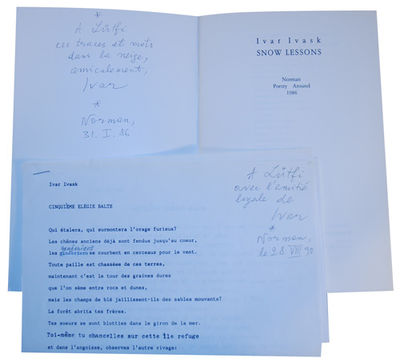 *
A Lûtfi
ces traces et mots
dans la neige,
amicalement,
Ivar
*
Norman,
31. I. 86
Ivar Ivask
SNOW LESSONS
Norman
Poetry Around
1986
A Lûtfi
avec l'amitié
loyale de
Ivar
*
Norman,
le 28 VII 90
Ivar Ivask
CINQUIÈME ELÉGIE BALTE
Qui étalera, qui surmontera l'orage furieux?
Les chênes anciens déjà sont fendus jusqu'au coeur,
les se courbent en cerceaux pour le vent.
Toute paille est chassée de ces terres,
maintenant c'est le tour des graines dures
que l'on sème entre rocs et dunes,
mais les champs de blé jaillissent-ils des sables mouvants?
La forêt abrita tes frères.
Tes soeurs se sont blotties dans le giron de la mer.
Toi-même tu chancelles sur cette île refuge
et dans l'angoisse, observes l'autre rivage: